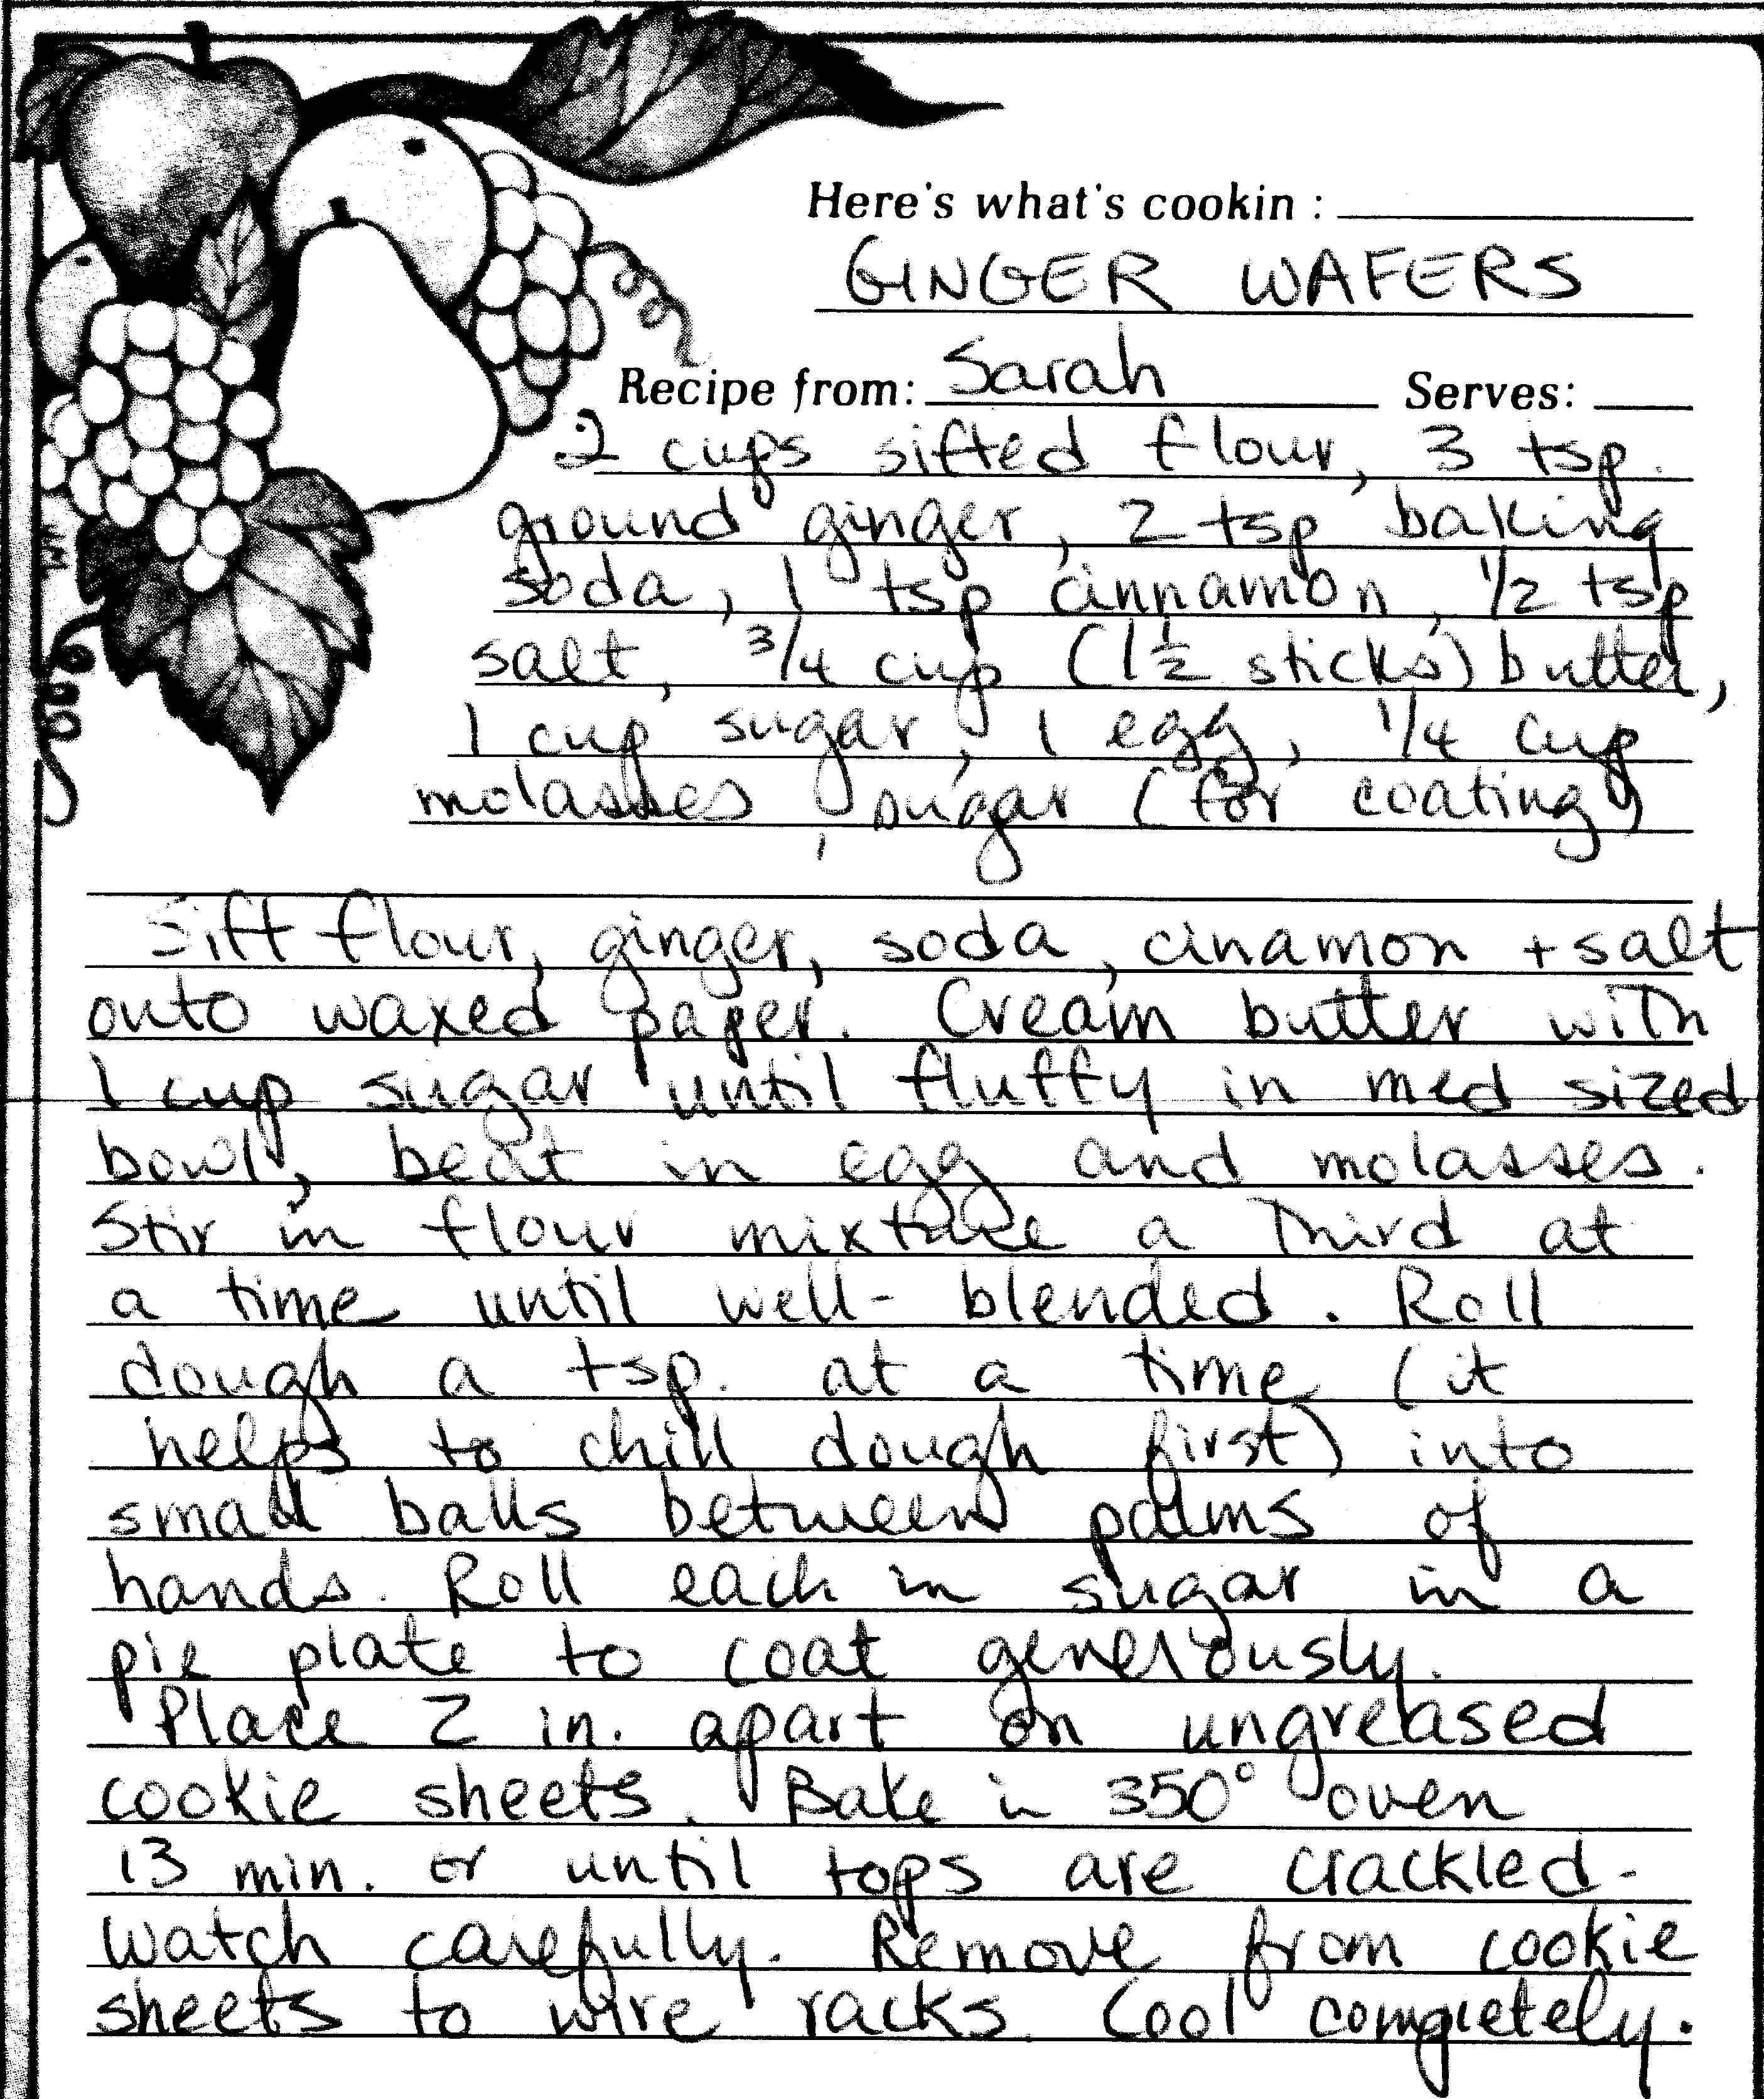 Here's what's cookin :
GINGER WAFERS
Recipe from: Sarah Serves:
2 cups sifted flour, 3 tsp.
ground ginger, 2 tsp baking
soda, 1 tsp cinnamon, 1/2 tsp
salt, 3/4 cup (1½ sticks) butter,
1 cup sugar, 1 egg, 1/4 cup
molasses, sugar (for coating)
Sift flour, ginger, soda, cinamon + salt
onto waxed paper. Cream butter with
1 cup sugar until fluffy in med sized
bowl, beat in egg and molasses.
Stir in flour mixture a third at
a time until well-blended. Roll
dough a tsp. at a time (it
helps to chill dough first) into
small balls between palms of
hands. Roll each in sugar in a
pie plate to coat generously.
Place 2 in. apart on ungreased
cookie sheets. Bake in 350° oven
13 min. or until tops are crackled-
Watch carefully. Remove from cookie
sheets to wire racks. Cool completely.